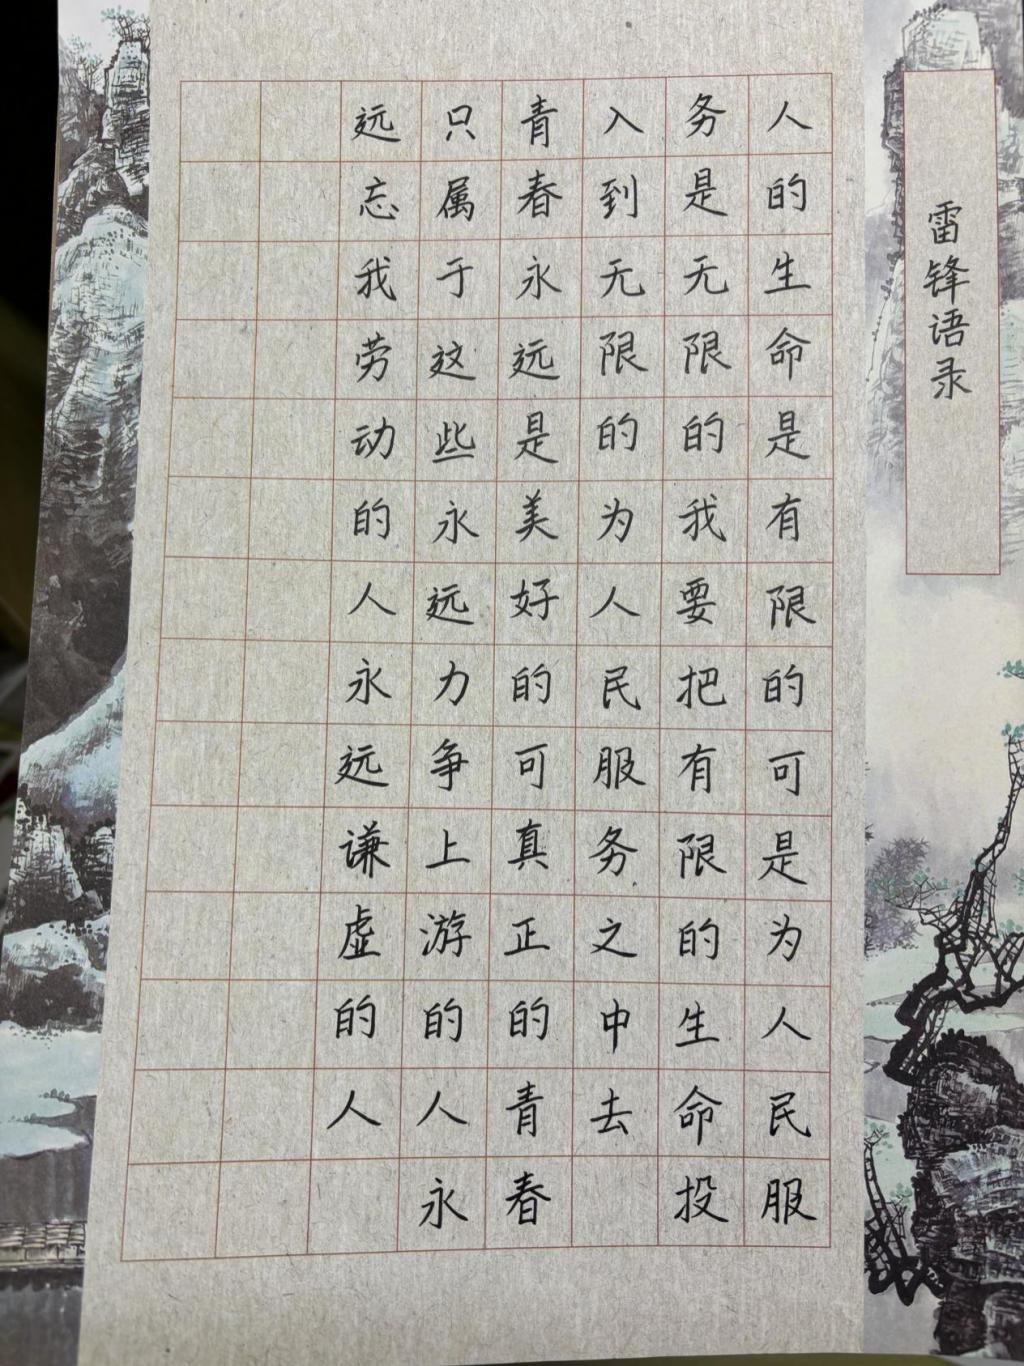 雷锋语录
人的生命是有限的可是为人民服
务是无限的我要把有限的生命投
入到无限的为人民服务之中去
青春永远是美好的可真正的青春
只属于这些永远力争上游的人永
远忘我劳动的人永远谦虚的人